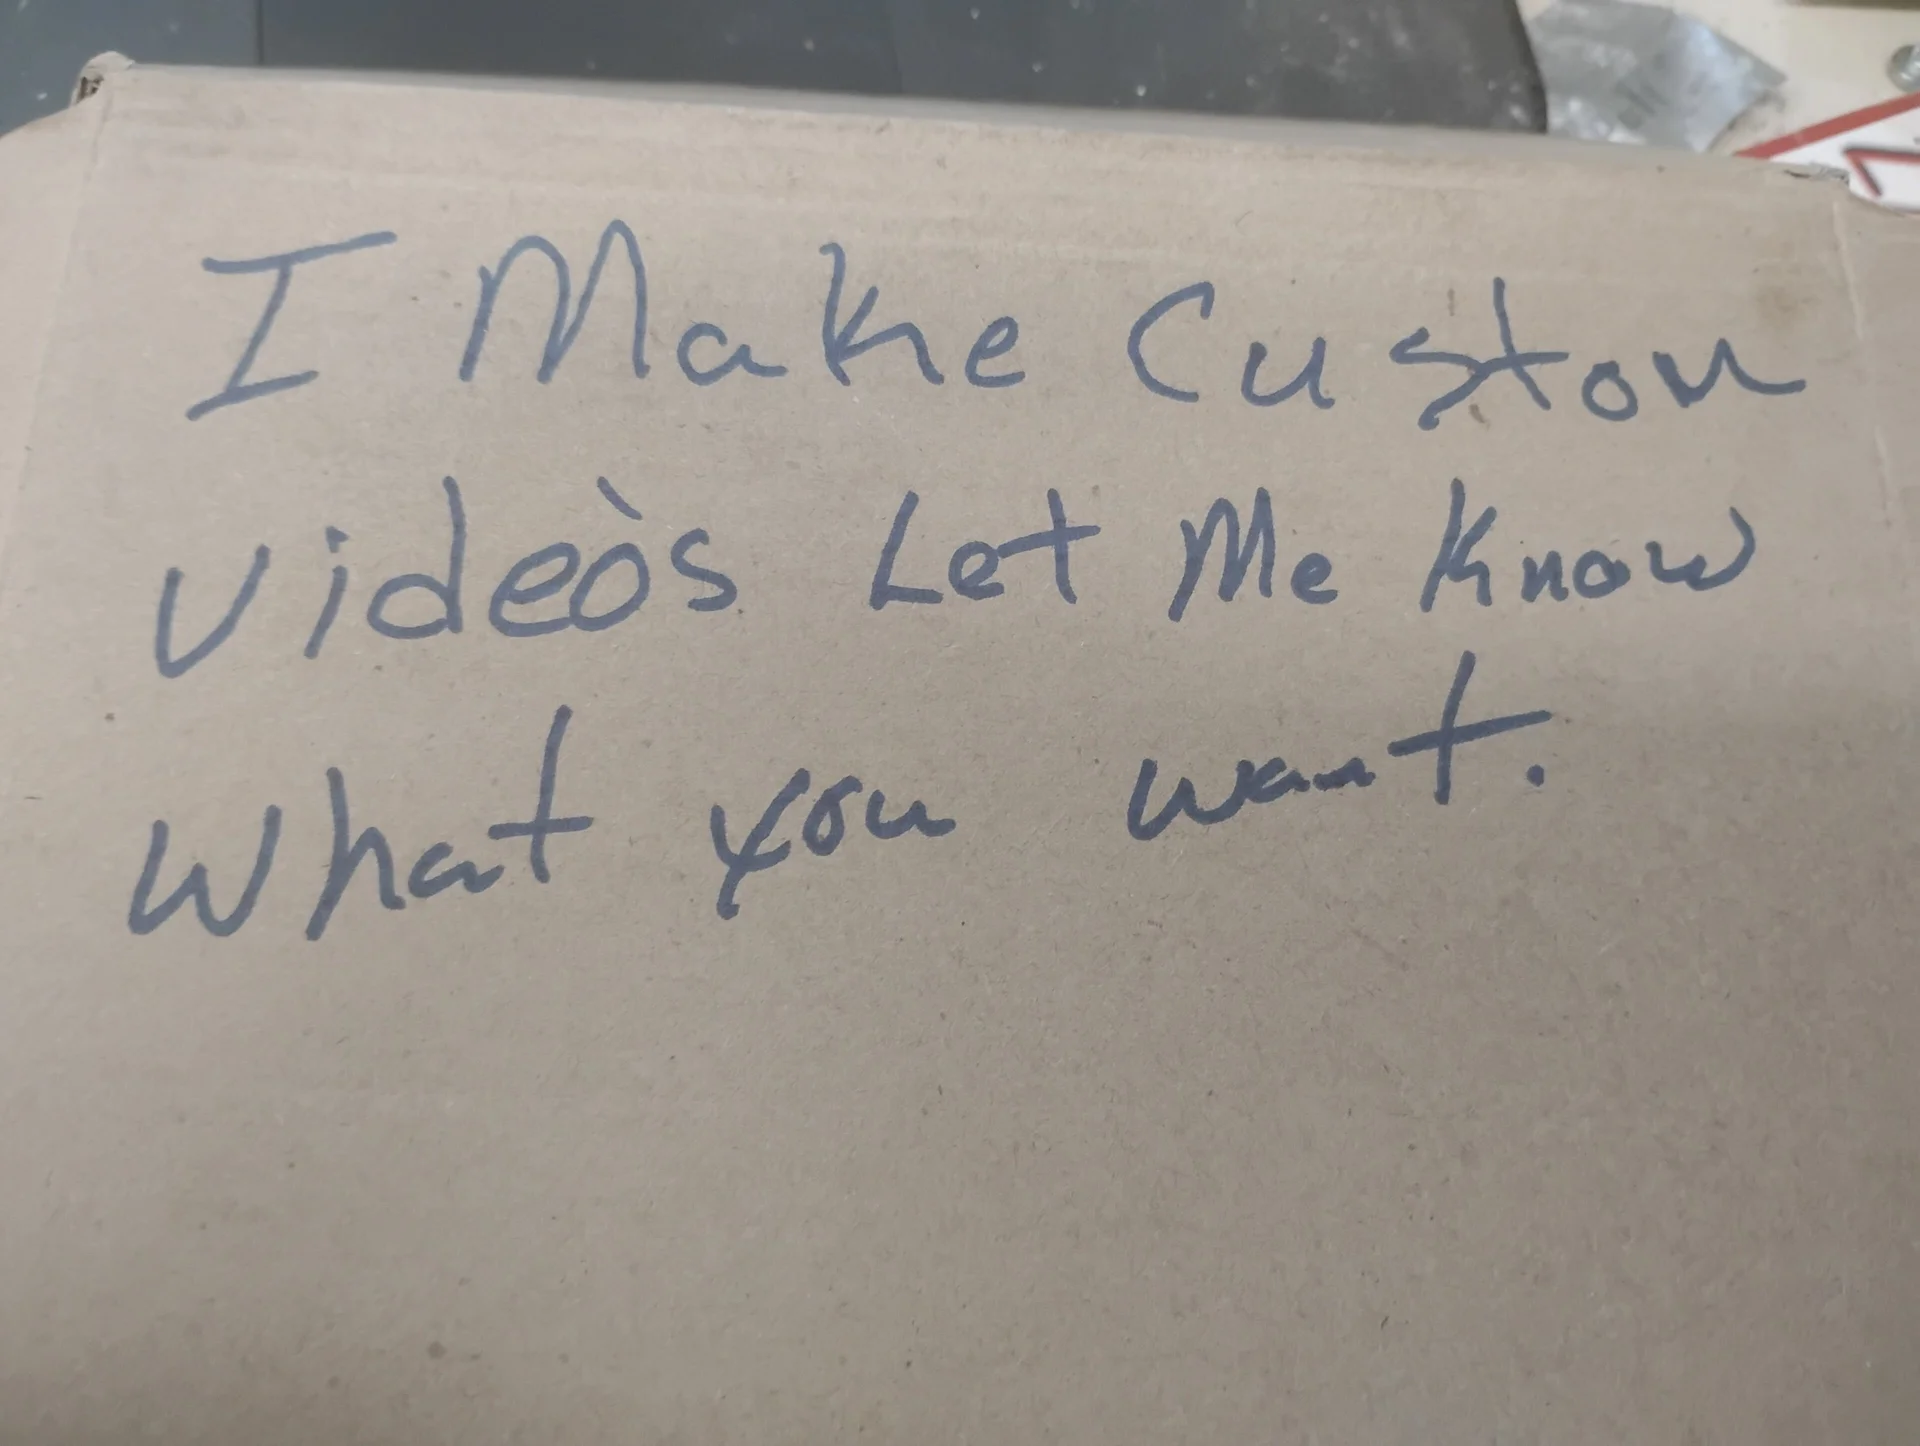 I Make Custom
videòs Let Me Know
What you want.